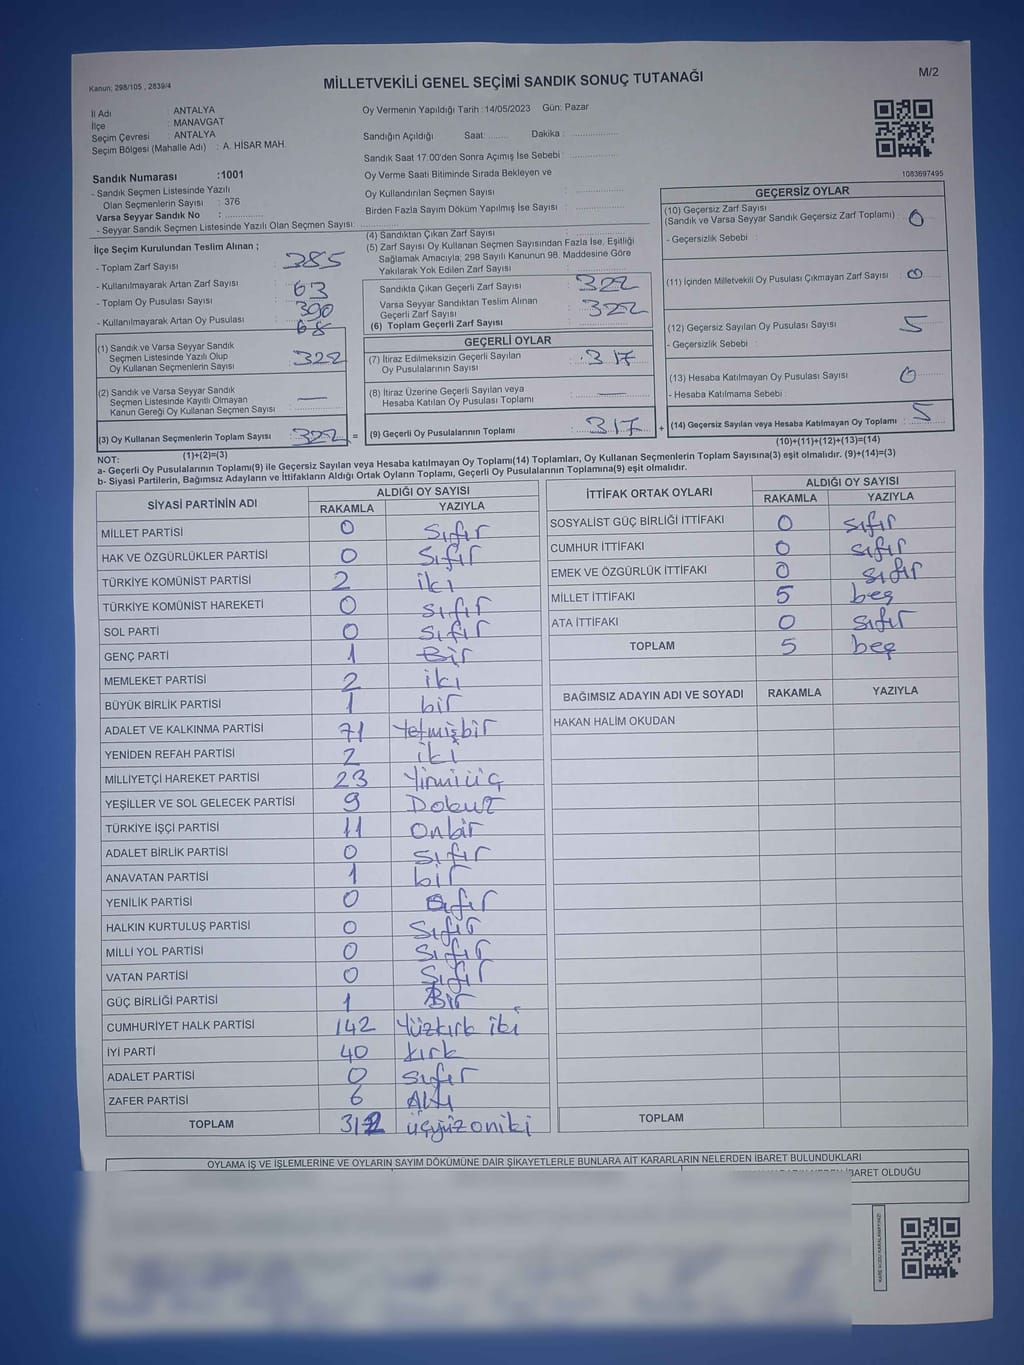 Kanun; 298/105 , 2839/4
MİLLETVEKİLİ GENEL SEÇİMİ SANDIK SONUÇ TUTANAĞI
M/2
İl Adı ANTALYA
İlçe : MANAVGAT
Seçim Çevresi : ANTALYA
Seçim Bölgesi (Mahalle Adı) : A. HİSAR MAH.
Oy Vermenin Yapıldığı Tarih :14/05/2023 Gün: Pazar
Sandığın Açıldığı Saat: ........ Dakika : ................
Sandık Saat 17.00'den Sonra Açımış İse Sebebi : ................
Oy Verme Saati Bitiminde Sırada Bekleyen ve
Oy Kullandırılan Seçmen Sayısı : ................
Birden Fazla Sayım Döküm Yapılmış İse Sayısı : ................
1083697495
Sandık Numarası :1001
- Sandık Seçmen Listesinde Yazılı
Olan Seçmenlerin Sayısı : 376
Varsa Seyyar Sandık No : ................
- Seyyar Sandık Seçmen Listesinde Yazılı Olan Seçmen Sayısı: ................
İlçe Seçim Kurulundan Teslim Alınan ;
- Toplam Zarf Sayısı : 385
- Kullanılmayarak Artan Zarf Sayısı : 63
- Toplam Oy Pusulası Sayısı : 390
- Kullanılmayarak Artan Oy Pusulası : 68
(1) Sandık ve Varsa Seyyar Sandık
Seçmen Listesinde Yazılı Olup
Oy Kullanan Seçmenlerin Sayısı : 322
(2) Sandık ve Varsa Seyyar Sandık
Seçmen Listesinde Kayıtlı Olmayan
Kanun Gereği Oy Kullanan Seçmen Sayısı : —
(3) Oy Kullanan Seçmenlerin Toplam Sayısı : 322 =
(1)+(2)=(3)
(4) Sandıktan Çıkan Zarf Sayısı : ................
(5) Zarf Sayısı Oy Kullanan Seçmen Sayısından Fazla İse, Eşitliği
Sağlamak Amacıyla; 298 Sayılı Kanunun 98. Maddesine Göre
Yakılarak Yok Edilen Zarf Sayısı : ................
Sandıkta Çıkan Geçerli Zarf Sayısı : 322
Varsa Seyyar Sandıktan Teslim Alınan
Geçerli Zarf Sayısı : 322
(6) Toplam Geçerli Zarf Sayısı : ................
GEÇERLİ OYLAR
(7) İtiraz Edilmeksizin Geçerli Sayılan
Oy Pusulalarının Sayısı : 317
(8) İtiraz Üzerine Geçerli Sayılan veya
Hesaba Katılan Oy Pusulası Toplamı : —
(9) Geçerli Oy Pusulalarının Toplamı : 317 +
GEÇERSİZ OYLAR
(10) Geçersiz Zarf Sayısı
(Sandık ve Varsa Seyyar Sandık Geçersiz Zarf Toplamı) : 0
- Geçersizlik Sebebi :
(11) İçinden Milletvekili Oy Pusulası Çıkmayan Zarf Sayısı : 0
(12) Geçersiz Sayılan Oy Pusulası Sayısı : 5
- Geçersizlik Sebebi :
(13) Hesaba Katılmayan Oy Pusulası Sayısı : 0
- Hesaba Katılmama Sebebi :
(14) Geçersiz Sayılan veya Hesaba Katılmayan Oy Toplamı : 5
(10)+(11)+(12)+(13)=(14)
NOT:
a- Geçerli Oy Pusulalarının Toplamı(9) ile Geçersiz Sayılan veya Hesaba katılmayan Oy Toplamı(14) Toplamları, Oy Kullanan Seçmenlerin Toplam Sayısına(3) eşit olmalıdır. (9)+(14)=(3)
b- Siyasi Partilerin, Bağımsız Adayların ve İttifakların Aldığı Ortak Oyların Toplamı, Geçerli Oy Pusulalarının Toplamına(9) eşit olmalıdır.
SİYASİ PARTİNİN ADI ALDIĞI OY SAYISI
RAKAMLA YAZIYLA
MİLLET PARTİSİ 0 Sıfır
HAK VE ÖZGÜRLÜKLER PARTİSİ 0 Sıfır
TÜRKİYE KOMÜNİST PARTİSİ 2 iki
TÜRKİYE KOMÜNİST HAREKETİ 0 sıfır
SOL PARTİ 0 Sıfır
GENÇ PARTİ 1 Bir
MEMLEKET PARTİSİ 2 iki
BÜYÜK BİRLİK PARTİSİ 1 bir
ADALET VE KALKINMA PARTİSİ 71 Yetmişbir
YENİDEN REFAH PARTİSİ 2 iki
MİLLİYETÇİ HAREKET PARTİSİ 23 Yirmiüç
YEŞİLLER VE SOL GELECEK PARTİSİ 9 Dokuz
TÜRKİYE İŞÇİ PARTİSİ 11 Onbir
ADALET BİRLİK PARTİSİ 0 sıfır
ANAVATAN PARTİSİ 1 bir
YENİLİK PARTİSİ 0 Sıfır
HALKIN KURTULUŞ PARTİSİ 0 Sıfır
MİLLİ YOL PARTİSİ 0 Sıfır
VATAN PARTİSİ 0 Sıfır
GÜÇ BİRLİĞİ PARTİSİ 1 Bir
CUMHURİYET HALK PARTİSİ 142 Yüzkırk iki
İYİ PARTİ 40 kırk
ADALET PARTİSİ 0 sıfır
ZAFER PARTİSİ 6 Altı
TOPLAM 312 üçyüzoniki
İTTİFAK ORTAK OYLARI ALDIĞI OY SAYISI
RAKAMLA YAZIYLA
SOSYALİST GÜÇ BİRLİĞİ İTTİFAKI 0 sıfır
CUMHUR İTTİFAKI 0 sıfır
EMEK VE ÖZGÜRLÜK İTTİFAKI 0 sıfır
MİLLET İTTİFAKI 5 beş
ATA İTTİFAKI 0 sıfır
TOPLAM 5 beş
BAĞIMSIZ ADAYIN ADI VE SOYADI RAKAMLA YAZIYLA
HAKAN HALİM OKUDAN
TOPLAM
OYLAMA İŞ VE İŞLEMLERİNE VE OYLARIN SAYIM DÖKÜMÜNE DAİR ŞİKAYETLERLE BUNLARA AİT KARARLARIN NELERDEN İBARET BULUNDUKLARI
İBARET OLDUĞU